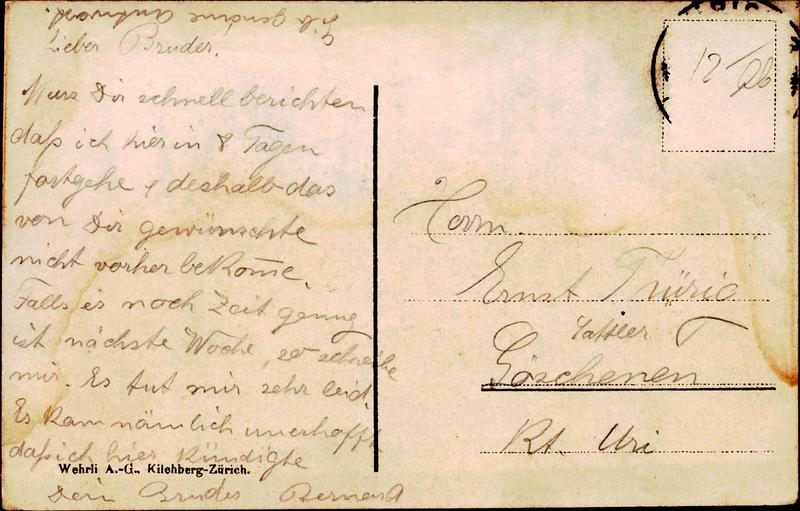 Gib genaue Antwort.
Lieber Bruder.
Muss Dir schnell berichten
daß ich hier in 8 Tagen
fortgehe & deshalb das
von Dir gewünschte
nicht vorher bekom̅e.
Falls es noch Zeit genug
ist nächste Woche, so schreibe
mir. Es tut mir sehr leid.
Es kam nämlich unerhofft
daß ich hier kündigte
Wehrli A.-G., Kilchberg-Zürich.
Dein Bruder Bernard
12
Herrn.
Ernst
Sattler
Göschenen
Kt. Uri